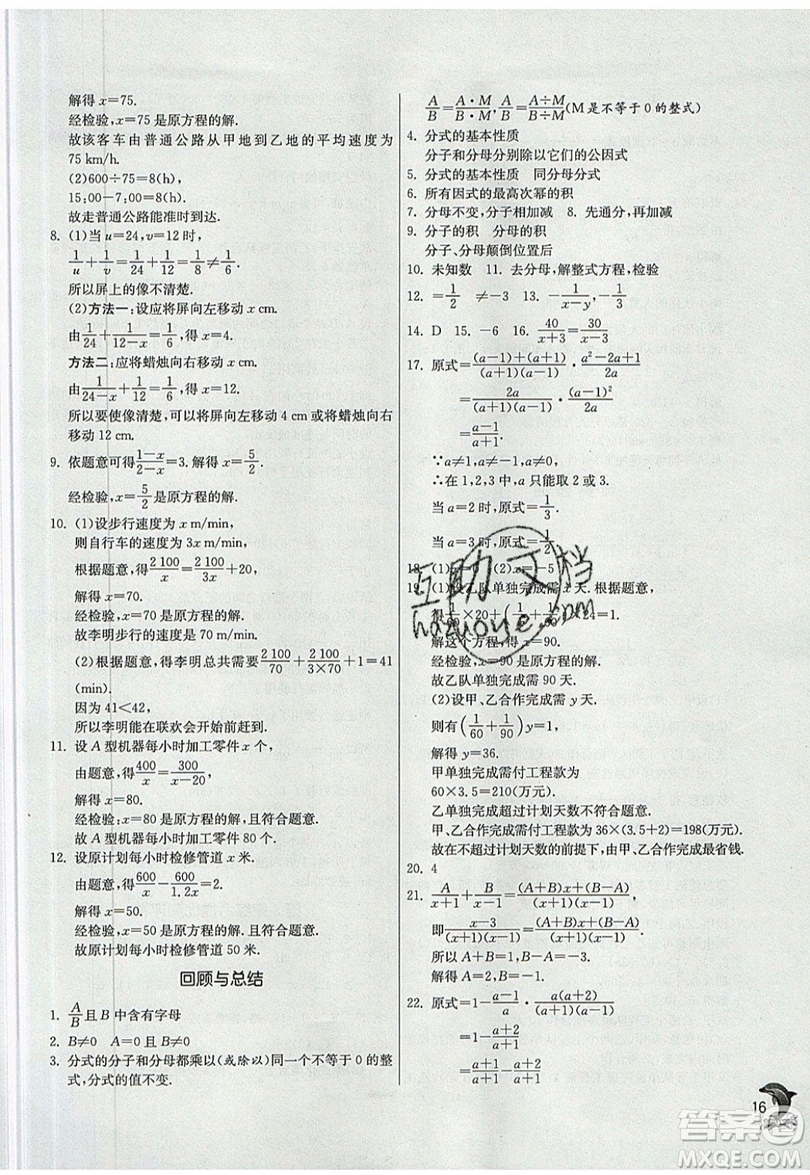 解得 x=75.
经检验,x=75 是原方程的解.
故该客车由普通公路从甲地到乙地的平均速度为
75 km/h.
(2)600÷75=8(h),
15:00-7:00=8(h),
故走普通公路能准时到达.
8. (1)当 u=24,v=12 时,
1/u+1/v=1/24+1/12=1/8≠1/6.
所以屏上的像不清楚.
(2)方法一:设应将屏向左移动 x cm.
由1/24+1/(12-x)=1/6,得 x=4.
方法二:应将蜡烛向右移动 x cm.
由1/(24-x)+1/12=1/6,得 x=12.
所以要使像清楚,可以将屏向左移动 4 cm 或将蜡烛向右
移动 12 cm.
9. 依题意可得(1-x)/(2-x)=3. 解得 x=5/2.
经检验,x=5/2是原方程的解.
10. (1)设步行速度为 x m/min,
则自行车的速度为 3x m/min,
根据题意,得2 100/x=2 100/3x+20.
解得 x=70.
经检验,x=70 是原方程的解.
故李明步行的速度是 70 m/min.
(2)根据题意,得李明总共需要2 100/70+2 100/(3×70)+1=41
(min).
因为 41<42,
所以李明能在联欢会开始前赶到.
11. 设 A 型机器每小时加工零件 x 个,
由题意,得400/x=300/(x-20).
解得 x=80.
经检验:x=80 是原方程的解,且符合题意.
故 A 型机器每小时加工零件 80 个.
12. 设原计划每小时检修管道 x 米.
由题意,得600/x-600/1.2x=2.
解得 x=50.
经检验,x=50 是原方程的解,且符合题意.
故原计划每小时检修管道 50 米.
回顾与总结
1. A/B且 B 中含有字母
2. B≠0 A=0 且 B≠0
3. 分式的分子和分母都乘以(或除以)同一个不等于 0 的整
式,分式的值不变.
A/B=(A·M)/(B·M),A/B=(A÷M)/(B÷M)(M 是不等于 0 的整式)
4. 分式的基本性质
分子和分母分别除以它们的公因式
5. 分式的基本性质 同分母分式
6. 所有因式的最高次幂的积
7. 分母不变,分子相加减 8. 先通分,再加减
9. 分子的积 分母的积
分子、分母颠倒位置后
10. 未知数 11. 去分母,解整式方程,检验
12. =1/2 ≠-3 13. -1/(x-y),-1/3
14. D 15. -6 16. 40/(x+3)=30/(x-3)
17. 原式=((a-1)+(a+1))/((a+1)(a-1))·(a²-2a+1)/2a
=2a/((a+1)(a-1))·(a-1)²/2a
=(a-1)/(a+1).
∵a≠1,a≠-1,a≠0.
∴在 1,2,3 中,a 只能取 2 或 3.
当 a=2 时,原式=1/3.
当 a=3 时,原式=1/2.
18. (2)x=-5
19. (1)设乙队单独完成需 x 天. 根据题意,
得1/60×20+(1/x+1/60)×24=1.
解这个方程,得 x=90.
经检验,x=90 是原方程的解.
故乙队单独完成需 90 天.
(2)设甲、乙合作完成需 y 天.
则有(1/60+1/90)y=1,
解得 y=36.
甲单独完成需付工程款为
60×3.5=210(万元).
乙单独完成超过计划天数不符合题意.
甲、乙合作完成需付工程款为 36×(3.5+2)=198(万元).
故在不超过计划天数的前提下,由甲、乙合作完成最省钱.
20. 4
21. A/(x+1)+B/(x-1)=((A+B)x+(B-A))/((x+1)(x-1)),
即(x-3)/((x+1)(x-1))=((A+B)x+(B-A))/((x+1)(x-1)).
所以 A+B=1,B-A=-3.
解得 A=2,B=-1.
22. 原式=1-(a-1)/a·a(a+2)/((a+1)(a-1))
=1-(a+2)/(a+1)
=(a+1)/(a+1)-(a+2)/(a+1)
16
互助文档
hazuoye.com
答案圈
MXQE.COM